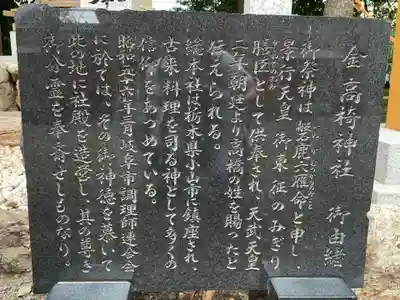 金高椅神社 御由緒
御祭神は、磐鹿六雁命と申し、
景行天皇 御東征のみぎり
膳臣として供奉され、天武天皇
二年朝廷より高橋の姓を賜ったと
伝えられる。
総本社は栃木県小山市に鎮座され、
古来料理を司る神として多くの
信仰をあつめている。
昭和五六年三月岐阜市調理師連合会
に於ては、その御神徳を慕いて
此の地に社殿を造営し、其の尊き
御分霊を奉斎せしものなり。